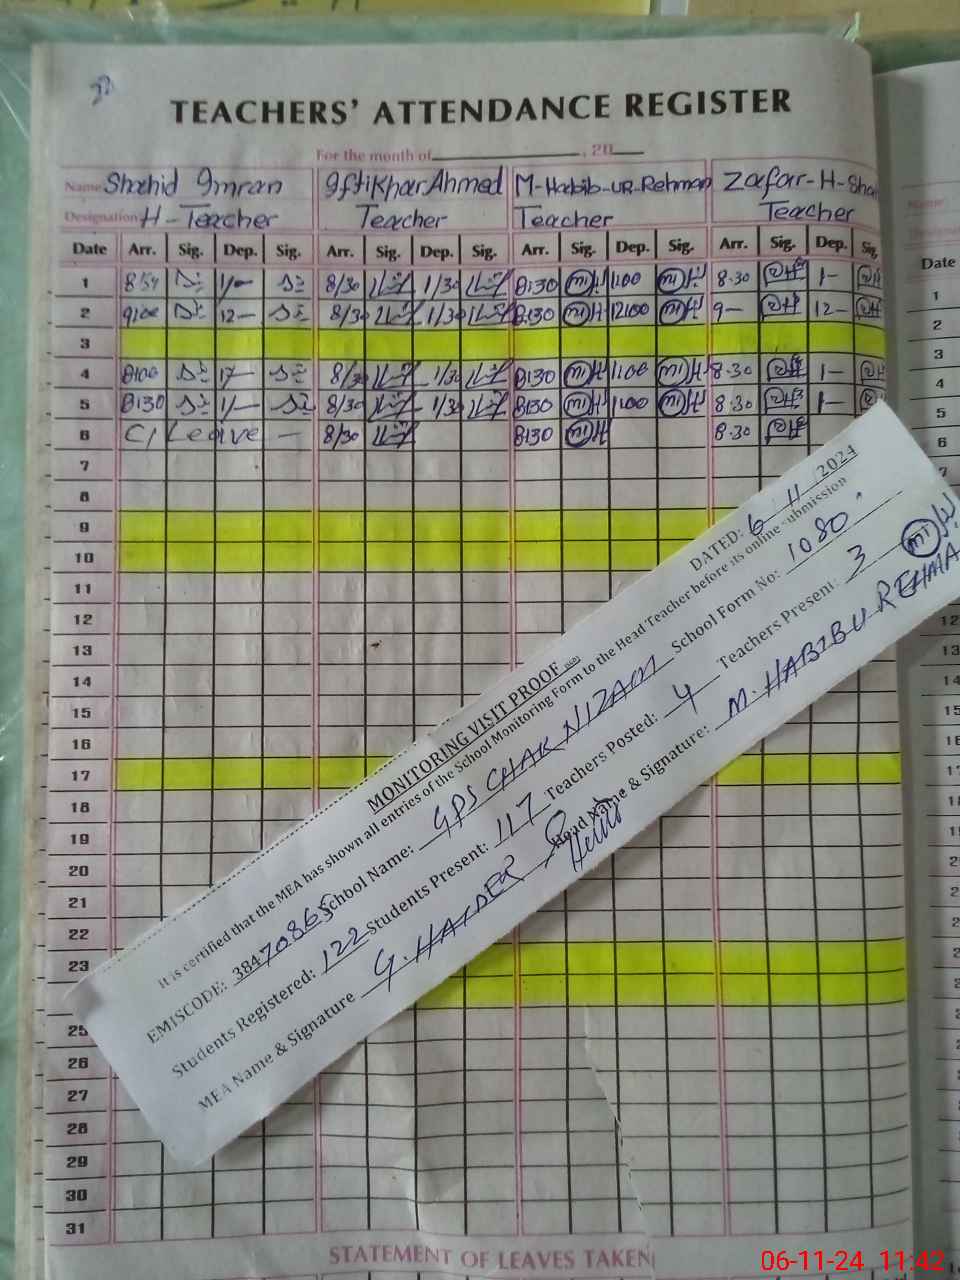 TEACHERS' ATTENDANCE REGISTER
For the month of , 20
Name Shahid Imran Iftikhar Ahmed M-Habib-ur-Rehman Zafar-H-Sha
Designation H-Teacher Teacher Teacher Teacher
Date Arr. Sig. Dep. Sig. Arr. Sig. Dep. Sig. Arr. Sig. Dep. Sig. Arr. Sig. Dep. Sig.
1 1/- 8/30 1/30 8:30 1:00 8.30 1-
2 9:00 12- 8/30 1/30 8:30 12:00 9- 12-
3
4 8/30 1/30 8:30 1:00 8.30 1-
5 8:30 1/- 8/30 1/30 8:30 1:00 8.30 1-
6 C/Leave - 8/30 8:30 8.30
7
8
9
10
11
12
13
14
15
16
17
18
19
20
21
22
23
25
26
27
28
29
30
31
STATEMENT OF LEAVES TAKEN
MONITORING VISIT PROOF
DATED: 6 11 2024
It is certified that the MEA has shown all entries of the School Monitoring Form to the Head Teacher before its online submission
EMISCODE: 38470865 School Name: GPS CHAK NIZAM School Form No: 1080
Students Registered: 122 Students Present: 117 Teachers Posted: 4 Teachers Present: 3
MEA Name & Signature G. HAIDER Head Name & Signature: M. HABIBU REHMA
Date
1
2
3
4
5
6
7
12
06-11-24 11:42